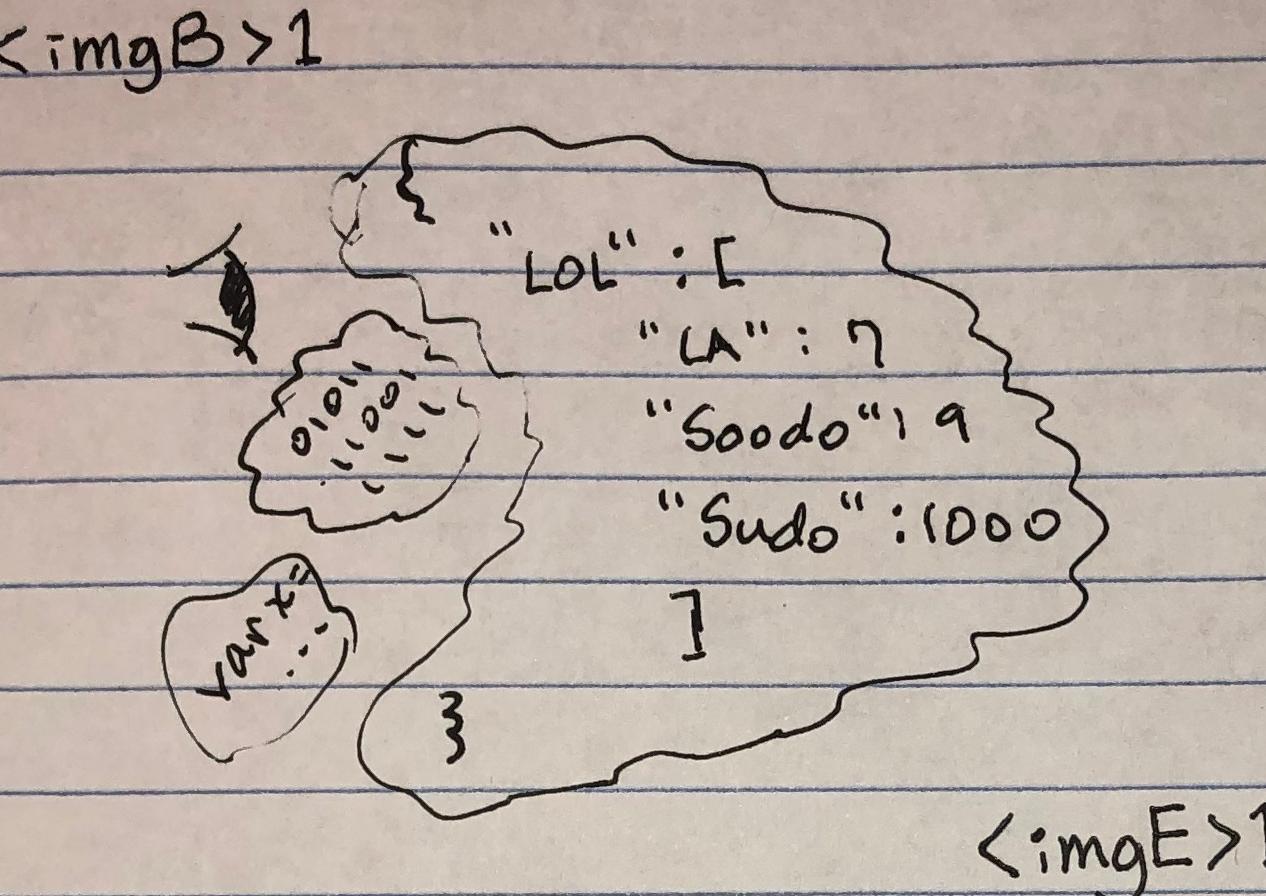 <imgB>1
{
"LOL" : [
"LA" : 7
"Soodo" : 9
"Sudo" : 1000
]
}
var x
<imgE>1